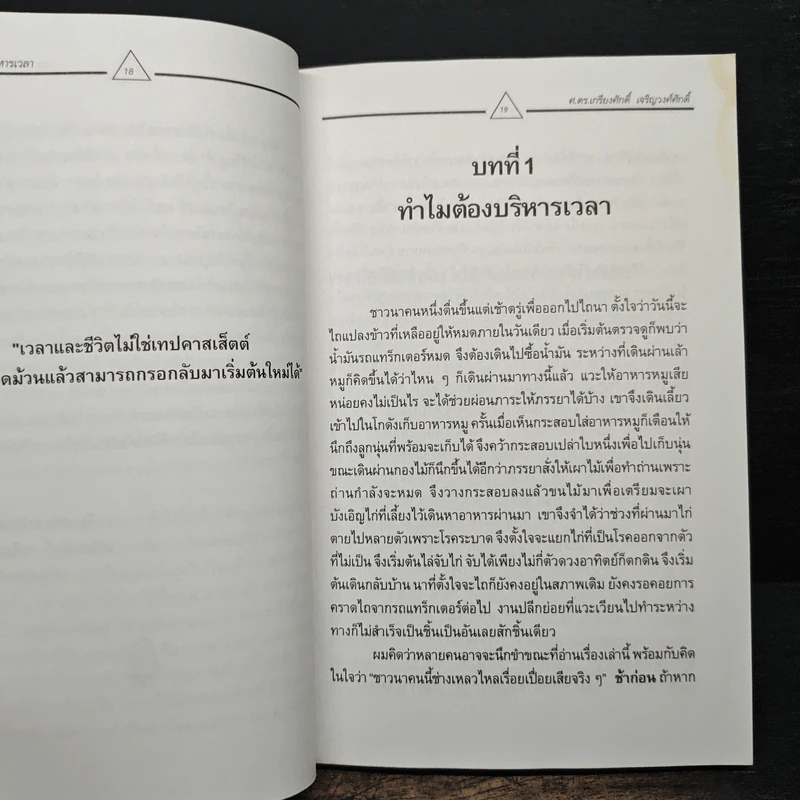 หารเวลา
18
"เวลาและชีวิตไม่ใช่เทปคาสเส็ตต์
ดม้วนแล้วสามารถกรอกลับมาเริ่มต้นใหม่ได้"
19
ศ.ดร.เกรียงศักดิ์ เจริญวงศ์ศักดิ์
บทที่ 1
ทำไมต้องบริหารเวลา
ชาวนาคนหนึ่งตื่นขึ้นแต่เช้าตรู่เพื่อออกไปไถนา ตั้งใจว่าวันนี้จะ
ไถแปลงข้าวที่เหลืออยู่ให้หมดภายในวันเดียว เมื่อเริ่มต้นตรวจดูก็พบว่า
น้ำมันรถแทร็กเตอร์หมด จึงต้องเดินไปซื้อน้ำมัน ระหว่างที่เดินผ่านเล้า
หมูก็คิดขึ้นได้ว่าไหน ๆ ก็เดินผ่านมาทางนี้แล้ว แวะให้อาหารหมูเสีย
หน่อยคงไม่เป็นไร จะได้ช่วยผ่อนภาระให้ภรรยาได้บ้าง เขาจึงเดินเลี้ยว
เข้าไปในโกดังเก็บอาหารหมู ครั้นเมื่อเห็นกระสอบใส่อาหารหมูก็เตือนให้
นึกถึงลูกนุ่นที่พร้อมจะเก็บได้ จึงคว้ากระสอบเปล่าใบหนึ่งเพื่อไปเก็บนุ่น
ขณะเดินผ่านกองไม้ก็นึกขึ้นได้อีกว่าภรรยาสั่งให้เผาไม้เพื่อทำถ่านเพราะ
ถ่านกำลังจะหมด จึงวางกระสอบลงแล้วขนไม้มาเพื่อเตรียมจะเผา
บังเอิญไก่ที่เลี้ยงไว้เดินหาอาหารผ่านมา เขาจึงจำได้ว่าช่วงที่ผ่านมาไก่
ตายไปหลายตัวเพราะโรคระบาด จึงตั้งใจจะแยกไก่ที่เป็นโรคออกจากตัว
ที่ไม่เป็น จึงเริ่มต้นไล่จับไก่ จับได้เพียงไม่กี่ตัวดวงอาทิตย์ก็ตกดิน จึงเริ่ม
ต้นเดินกลับบ้าน นาที่ตั้งใจจะไถก็ยังคงอยู่ในสภาพเดิม ยังคงรอคอยการ
คราดไถจากรถแทร็กเตอร์ต่อไป งานปลีกย่อยที่แวะเวียนไปทำระหว่าง
ทางก็ไม่สำเร็จเป็นชิ้นเป็นอันเลยสักชิ้นเดียว
ผมคิดว่าหลายคนอาจจะนึกขำขณะที่อ่านเรื่องเล่านี้ พร้อมกับคิด
ในใจว่า "ชาวนาคนนี้ช่างเหลวไหลเรื่อยเปื่อยเสียจริง ๆ" ช้าก่อน ถ้าหาก